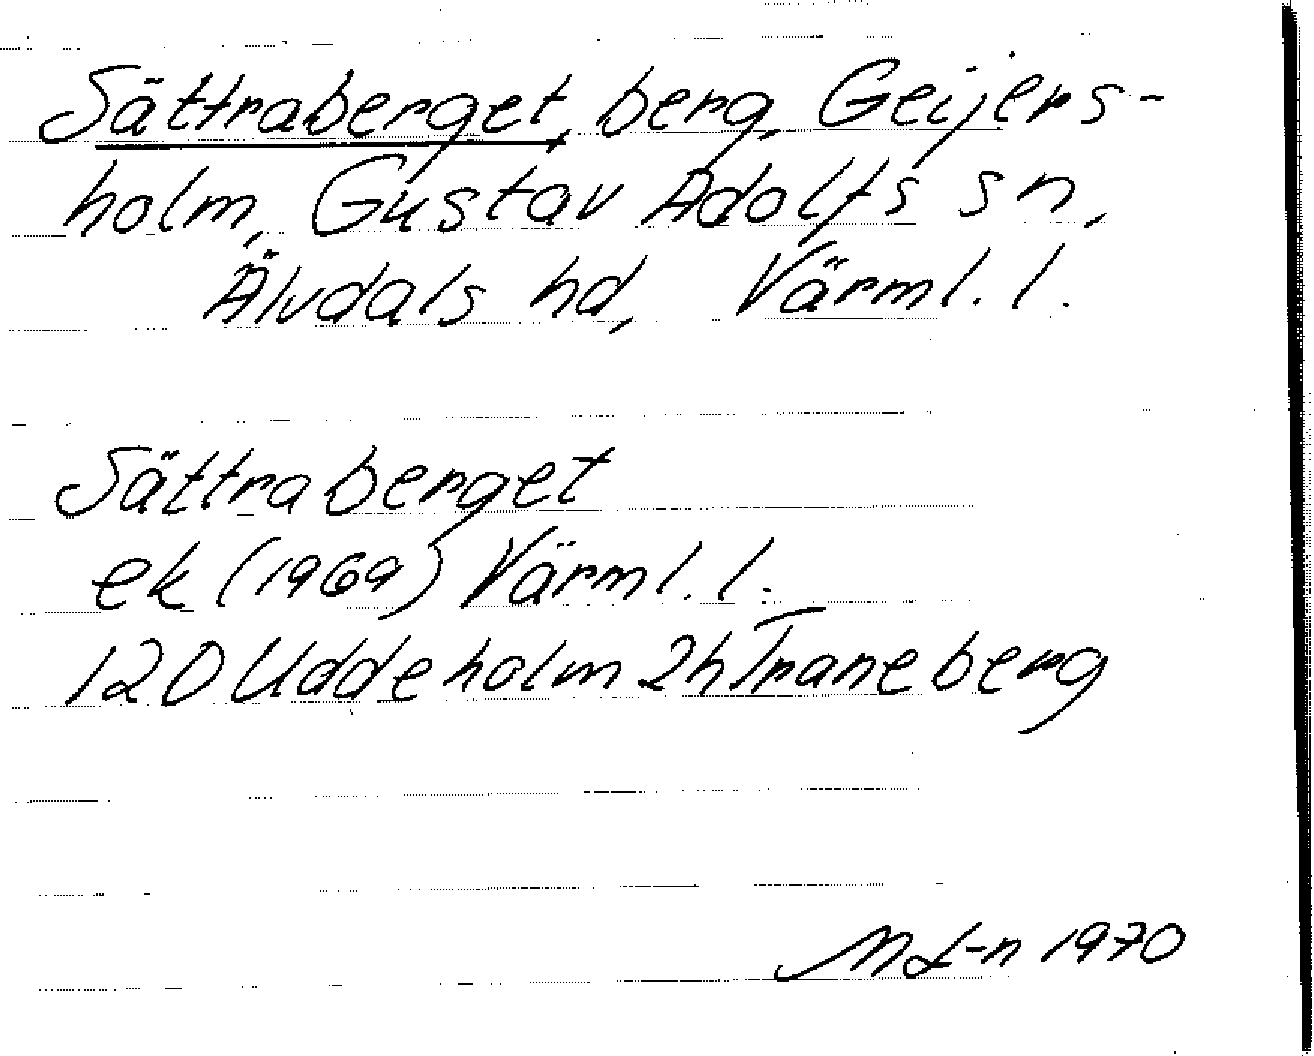 Sättraberget, berg, Geijers-
holm, Gustav Adolfs sn,
Älvdals hd, Värml. l.
Sättraberget
ek (1969) Värml. l.
12D Uddeholm 2h Traneberg
M L-n 1970